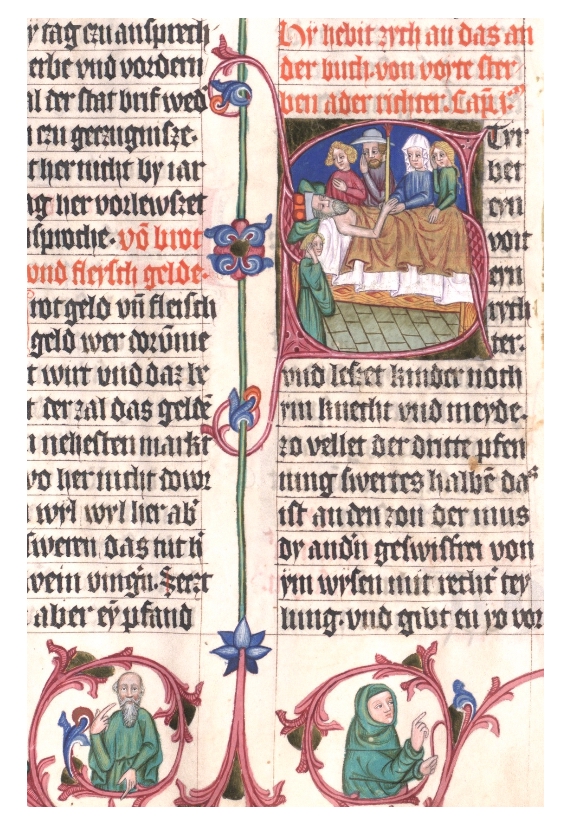 y tag czu ansprech
erbe vnd vordern
al der stat brif wed'
n czu geczugnisze.
t her nicht by iar
ag her vorlewszet
nsproche. vō brot
vnd fleysch gelde.
rot geld vn̄ fleisch
geld wer
t wirt vnd daz be
t der zal das gelde
n nehesten markt
vo her nicht
wyl wyl her ab'
sweren das tut h'
wein vingn. Seczt
aber ey pfand
Hy hebit zych an das an
der buch. von voyte ster
ben ader richter. Cap. i.
tyr
bet
eyn
voit
eyn
rych
ter.
vnd leszet kinder noch
ym knecht vnd meyde.
zo vellet der dritte pfen
ning swertes halbē
ist an den zon der mus
dy and'n geswistrei von
ym wysen mit recht tey
lung. vnd gibt en yo vor